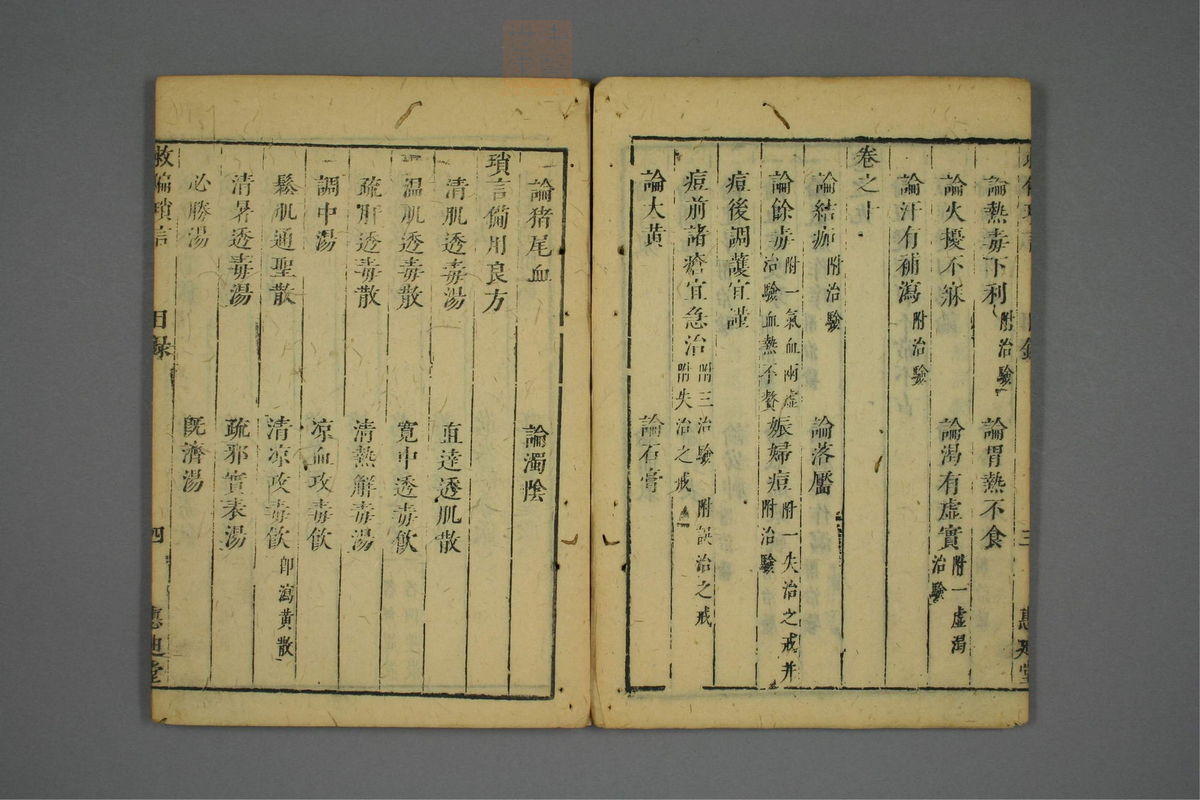 論熱毒下利 附治驗 論胃熱不食
論火擾不寐 論渴有虛實 附一虛渴治驗
論汗有補瀉 附治驗
卷之十
論結痂 附治驗 論落靨
論餘毒 附一氣血兩虛治驗血熱不贅 娠婦痘 附一失治之戒并附治驗
痘後調護宜謹
痘前諸瘡宜急治 附三治驗附失治之戒 附誤治之戒
論大黃 論石膏
三
惠迪堂
論猪尾血 論濁陰
瑣言備用良方
清肌透毒湯 直達透肌散
温肌透毒散 寬中透毒飮
疏肝透毒散 清熱解毒湯
調中湯 凉血攻毒飮
鬆肌通聖散 清凉攻毒飮 即瀉黃散
清暑透毒湯 疏邪實表湯
必勝湯 旣濟湯
救偏瑣言 目錄 四 惠迪堂